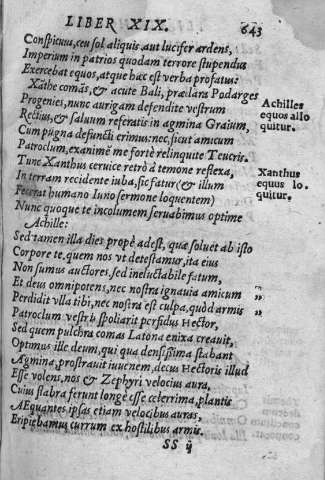 LIBER XIX.
643
Conspicuus, ceu sol aliquis aut lucifer ardens,
Imperium in patrios quodam terrore stupendus
Exercebat equos, atque hæc est verba profatus:
Xāthe comās, & acute Bali, præclara Podarges
Progenies, nunc aurigam defendite vestrum
Rectius, & saluum referatis in agmina Graium,
Cum pugna defuncti erimus: nec, sicut amicum
Patroclum, exanimē me fortè relinquite Teucris.
Achilles
equos allo
quitur.
Tunc Xanthus ceruice retrò à temone reflexa,
In terram recidente iuba, sic fatur (& illum
Fecerat humano Iuno sermone loquentem)
Nunc quoque te incolumem seruabimus optime
Achille:
Xanthus
equus lo-
quitur.
Sed tamen illa dies propè adest, quæ soluet ab isto
Corpore te, quem nos vt detestamur, ita eius
Non sumus auctores, sed ineluctabile fatum,
Et deus omnipotens, nec nostra ignauia amicum „
Perdidit vlla tibi, nec nostra est culpa, quòd armis „
Patroclum vestrb spoliarit perfidus Hector,
Sed quem pulchra comas Latona enixa creauit,
Optimus ille deum, qui qua densissima stabant
Agmina, prostrauit iuuenem, decus Hectoris illud
Esse volens, nos & Zephyri velocius aura,
Cuius flabra ferunt longè esse celerrima, plantis
AEquantes ipsas etiam velocibus auras,
Eripiebamus currum ex hostilibus armis.
SS ij